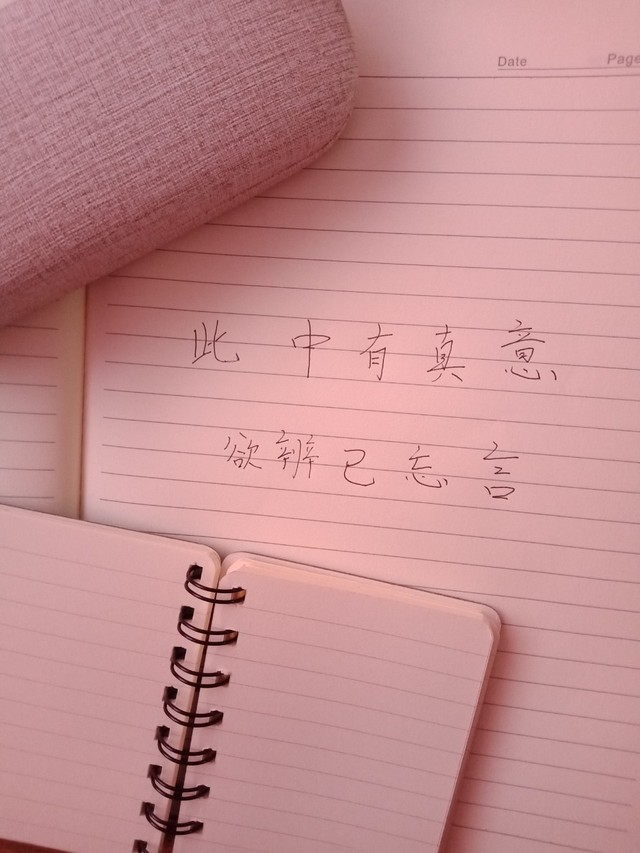 Date Page
此中有真意
欲辨已忘言